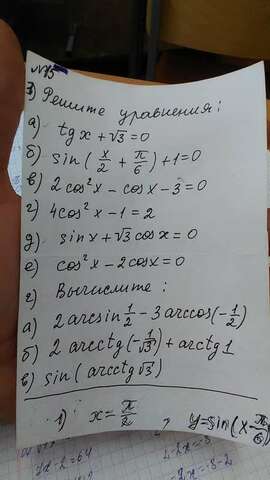 №15
1) Решите уравнения:
а) tg x + √3 = 0
б) sin(x/2 + π/6) + 1 = 0
в) 2cos²x - cosx - 3 = 0
г) 4cos²x - 1 = 2
д) sinx + √3 cosx = 0
е) cos²x - 2cosx = 0
2) Вычислите:
а) 2arcsin 1/2 - 3arccos(-1/2)
б) 2 arcctg(-1/√3) + arctg 1
в) sin(arcctg√3)
1) x = π/2 y = sin(x - π/6)